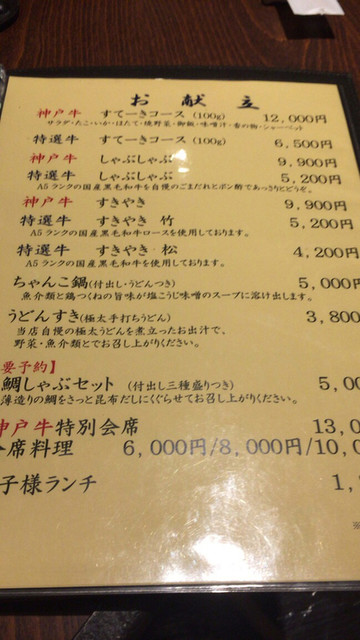 お献立
神戸牛 すてーきコース (100g) 12,000円
サラダ・たこ・いか・ほたて・焼野菜・御飯・味噌汁・香の物・シャーベット
特選牛 すてーきコース (100g) 6,500円
神戸牛 しゃぶしゃぶ 9,900円
特選牛 しゃぶしゃぶ 5,200円
A5ランクの国産黒毛和牛を自慢のごまだれとポン酢であっさりとどうぞ。
神戸牛 すきやき 9,900円
特選牛 すきやき 竹 5,200円
A5ランクの国産黒毛和牛ロースを使用しております。
特選牛 すきやき 松 4,200円
A5ランクの国産黒毛和牛を使用しております。
ちゃんこ鍋(付出し・うどんつき) 5,000円
魚介類と鶏つくねの旨味が塩こうじ味噌のスープに溶け出します。
うどんすき(極太手打ちうどん) 3,800
当店自慢の極太うどんを煮立ったお出汁で、
野菜・魚介類とでお召し上がりください。
要予約】
鯛しゃぶセット (付出し三種盛りつき) 5,00
薄造りの鯛をさっと昆布だしにくぐらせてお召し上がりください。
神戸牛特別会席 13,0
席料理 6,000円/8,000円/10,0
子様ランチ 1,
※